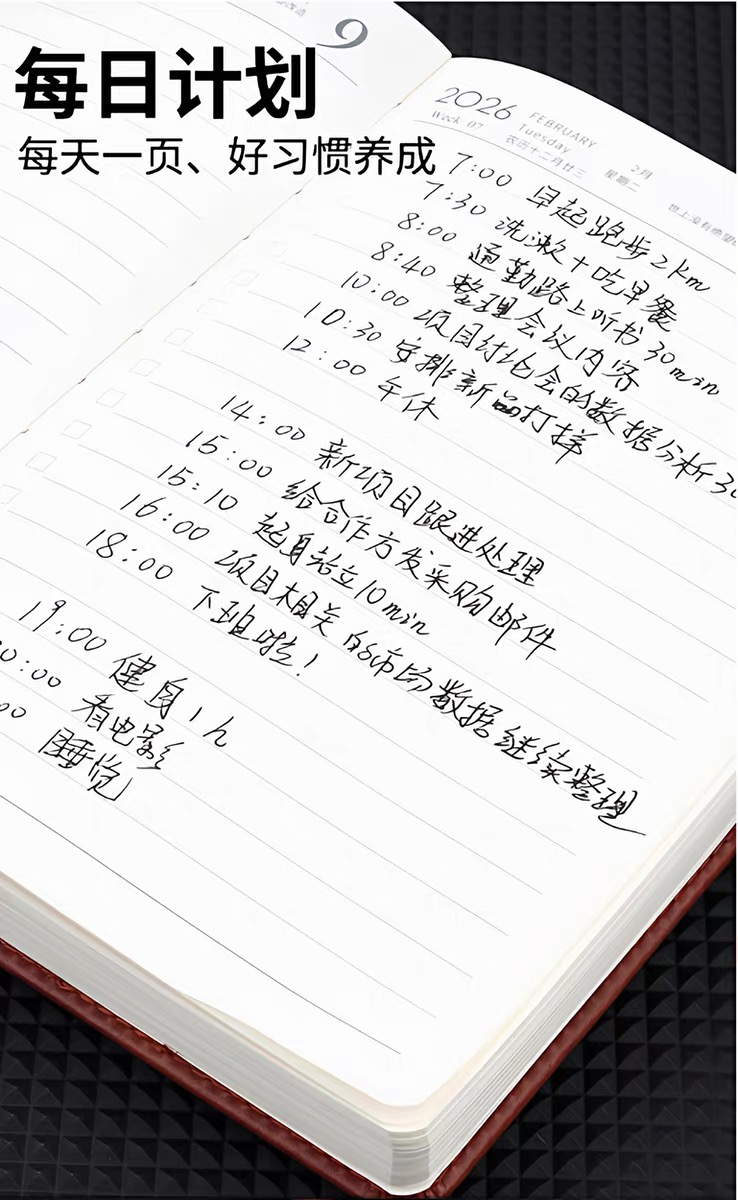 每日计划
每天一页、好习惯养成
9
2026 FEBRUARY 2月
Week 07 Tuesday 星期二
农历十二月廿三
世上没有绝望
7:00 早起跑步2km
7:30 洗漱+吃早餐
8:00 通勤路上听书30min
8:40 整理会议内容
10:00 项目讨论会的数据分析30
10:30 安排新品打样
12:00 午休
14:00 新项目跟进处理
15:00 给合作方发采购邮件
15:10 起身站立10min
16:00 项目相关的市场数据继续整理
18:00 下班啦!
19:00 健身1h
0:00 看电影
00 睡觉